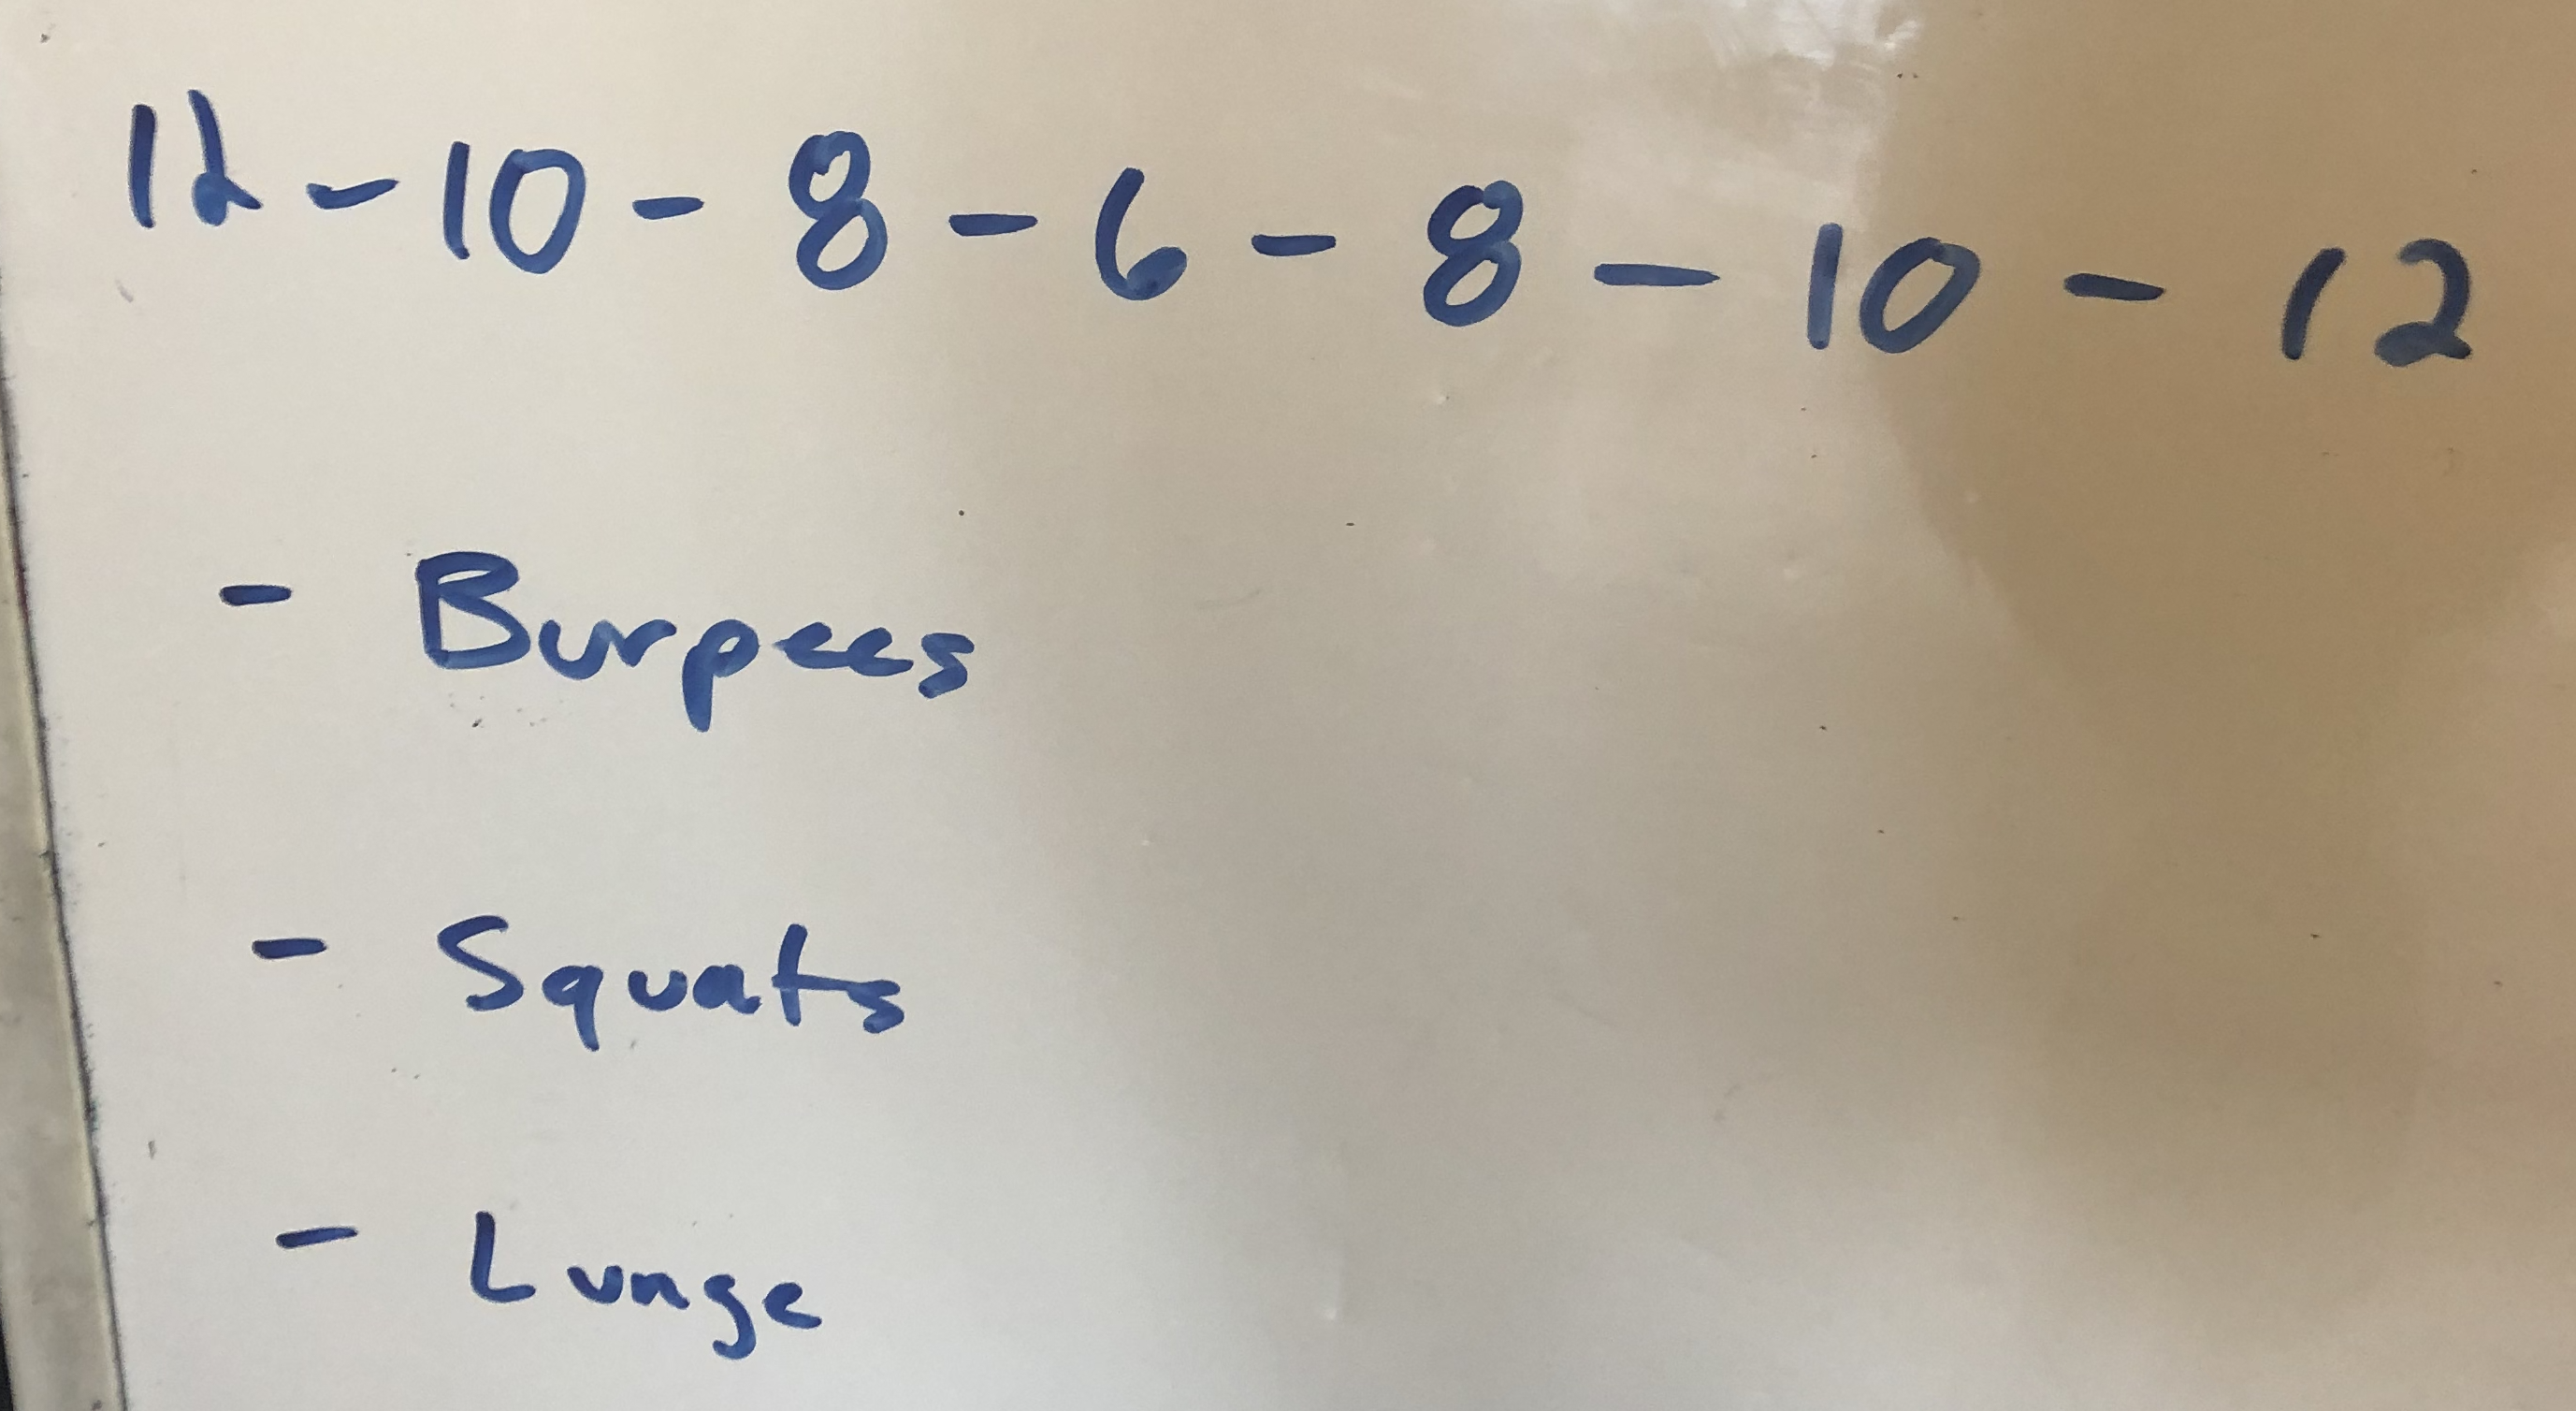 12 - 10 - 8 - 6 - 8 - 10 - 12
- Burpees
- Squats
- Lunge